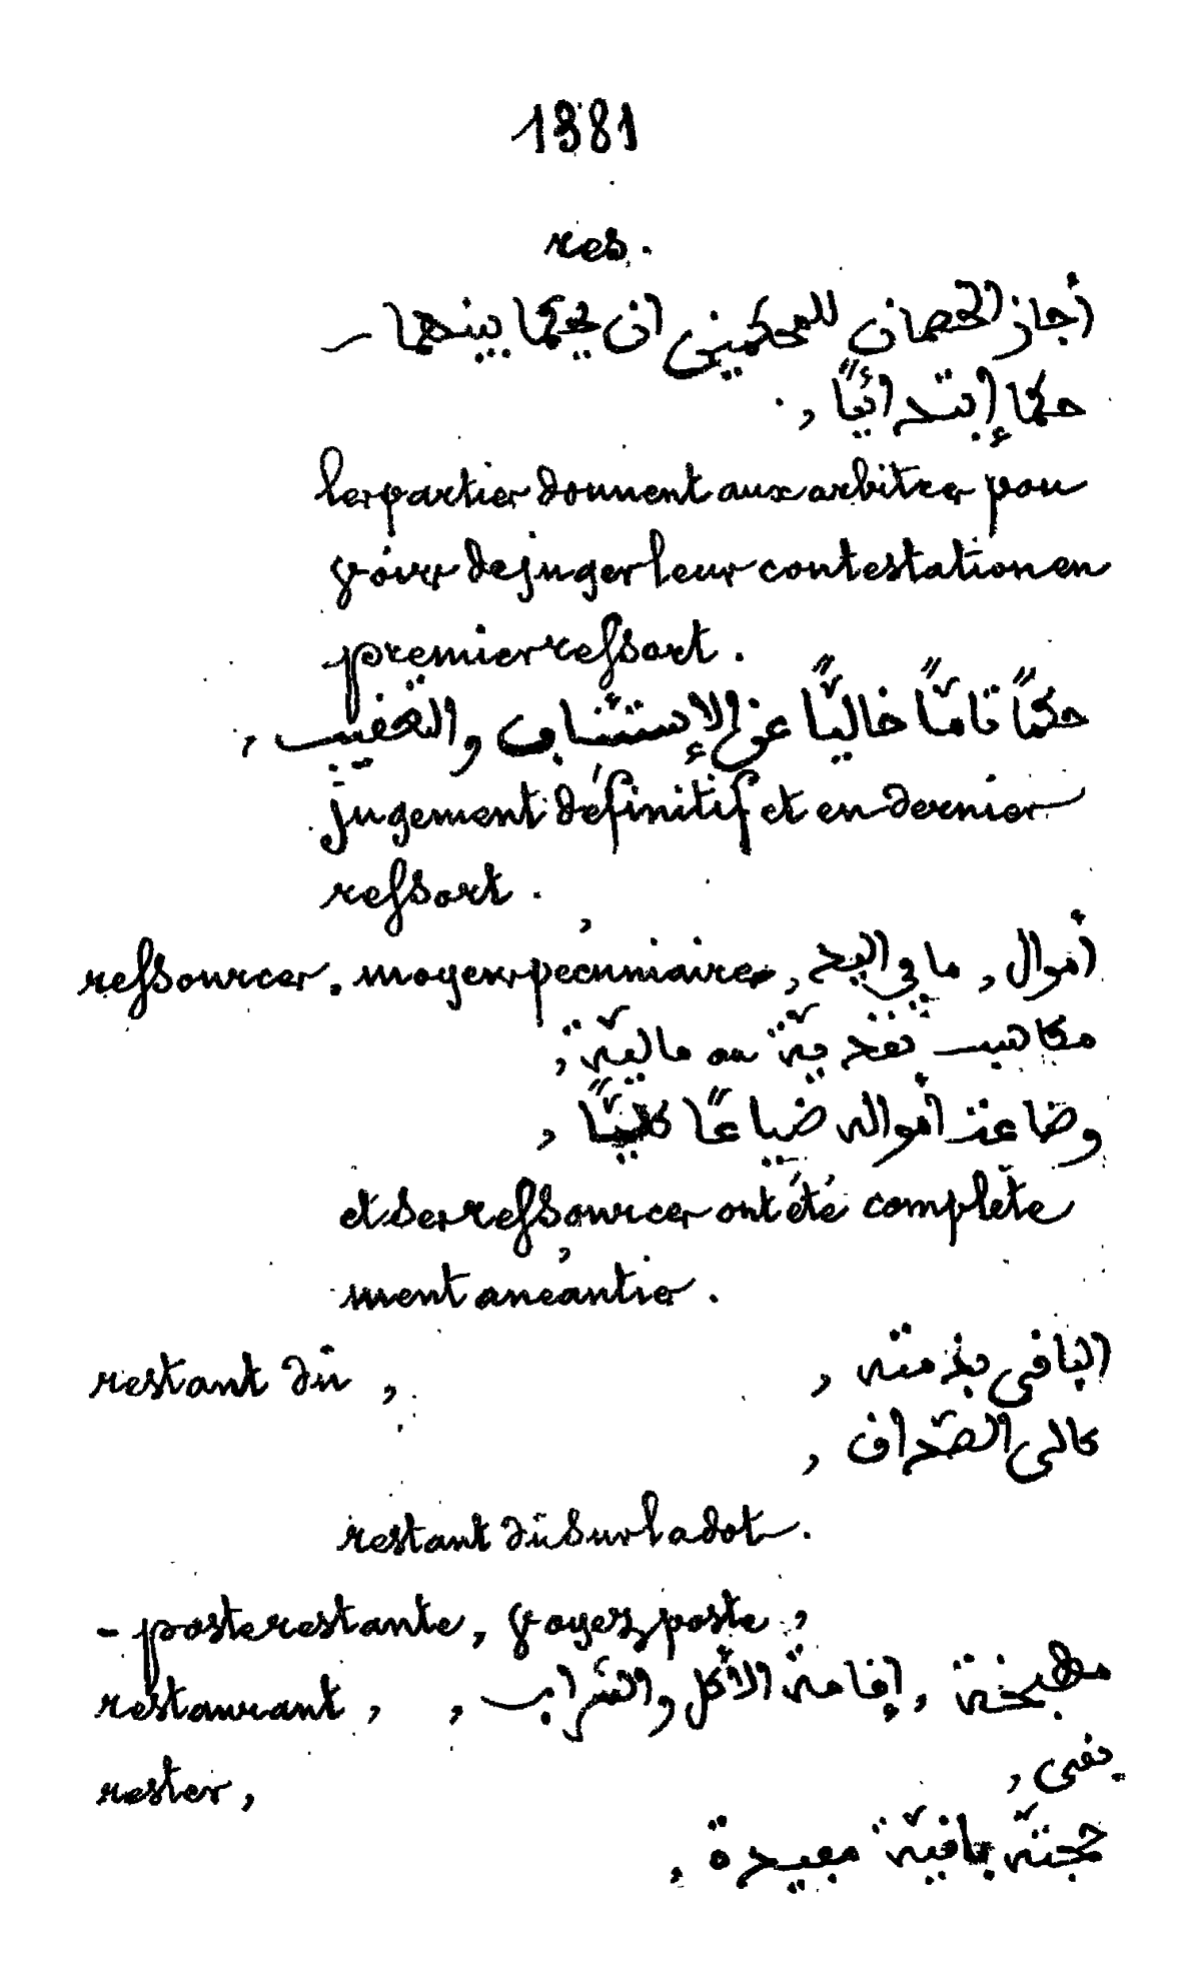 1381
res.
أجاز الخصمان للمحكمين ان يحكما بينهما –
حكما إبتدائيًّا ,
les parties donnent aux arbitres pou
voir de juger leur contestation en
premier ressort.
حكمًا تامًّا خاليًّا عن الإستئناف والتعقيب ,
jugement définitif et en dernier
ressort.
ressources. moyens pécuniaires, أموال , ما في اليد
مكاسب نقديّة au ماليّة ,
وضاعت أمواله ضياعًا كليًّا ,
et ses ressources ont été complète
ment anéanties.
restant dû , الباقي بذمته ,
كالى الصّداق ,
restant dû sur la dot.
- poste restante, voyez poste,
restaurant , , مطبخة , إقامة الأكل والشّراب
rester, يبقى ,
حجّته باقيّة مفيدة ,